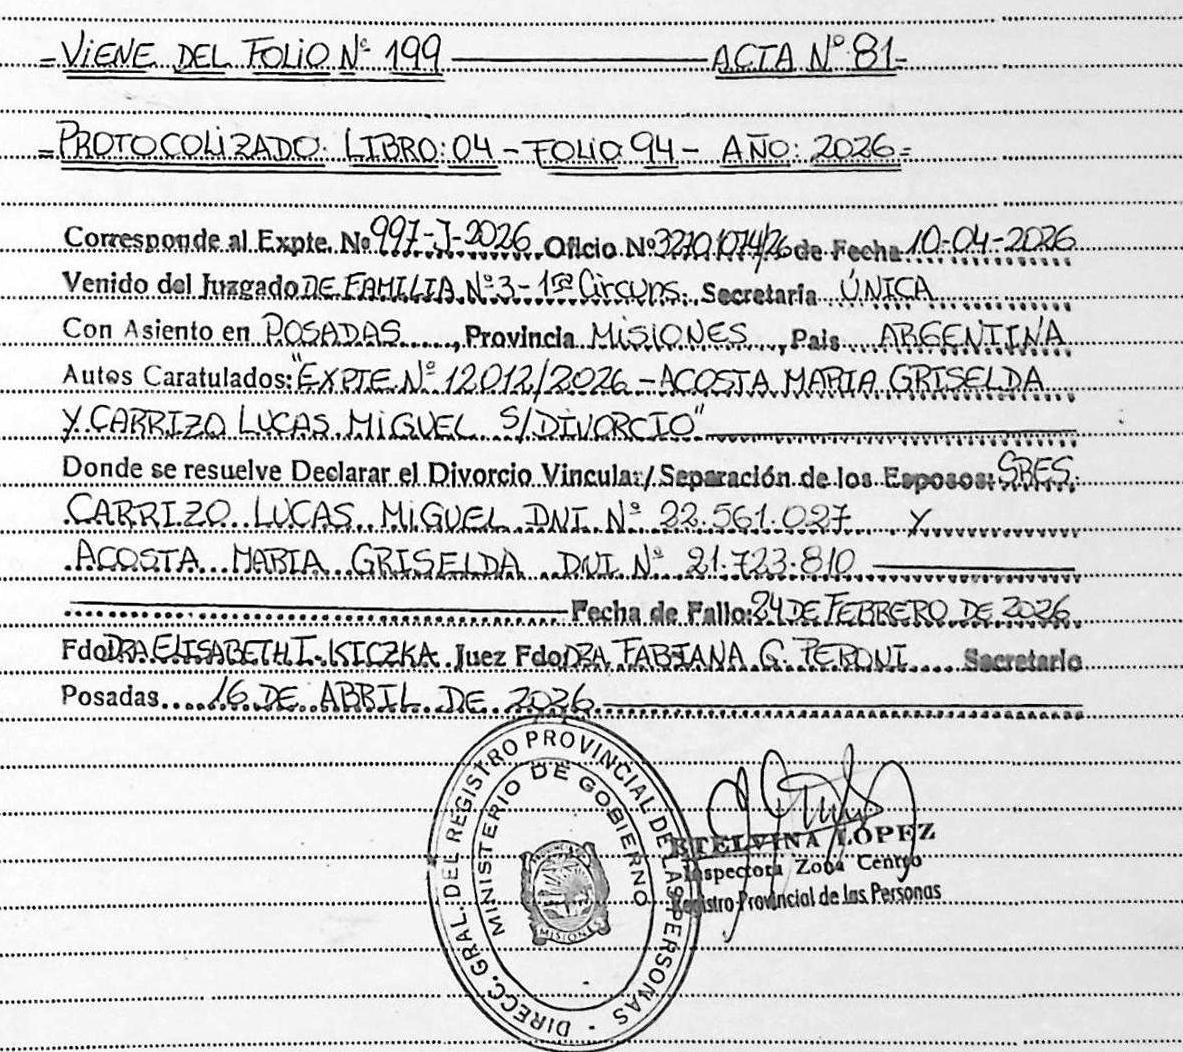 =VIENE DEL FOLIO Nº 199 ACTA Nº 81=
=PROTOCOLIZADO: LIBRO: 04 - FOLIO 94 - AÑO: 2026=
Corresponde al Expte. Nº 997-J-2026 Oficio Nº 32701074/26 de Fecha 10-04-2026
Venido del Juzgado DE FAMILIA Nº 3 - 1ra Circuns. Secretaria ÚNICA
Con Asiento en POSADAS, Provincia MISIONES, Pais ARGENTINA
Autos Caratulados: "EXPTE. Nº 12012/2026 - ACOSTA MARIA GRISELDA
Y CARRIZO LUCAS MIGUEL S/DIVORCIO"
Donde se resuelve Declarar el Divorcio Vincular/Separación de los Esposos: SRES.
CARRIZO LUCAS MIGUEL DNI Nº 22.561.027 y
ACOSTA MARIA GRISELDA DNI Nº 21.723.810
Fecha de Fallo: 24 DE FEBRERO DE 2026
Fdo DRA ELISABETH I. KICZKA Juez Fdo DRA FABIANA G. PERONI Secretario
Posadas 16 DE ABRIL DE 2026
DIRECC. GRAL. DEL REGISTRO PROVINCIAL DE LAS PERSONAS
MINISTERIO DE GOBIERNO
MISIONES
ETELVINA LOPEZ
Inspectora Zona Centro
Registro Provincial de las Personas